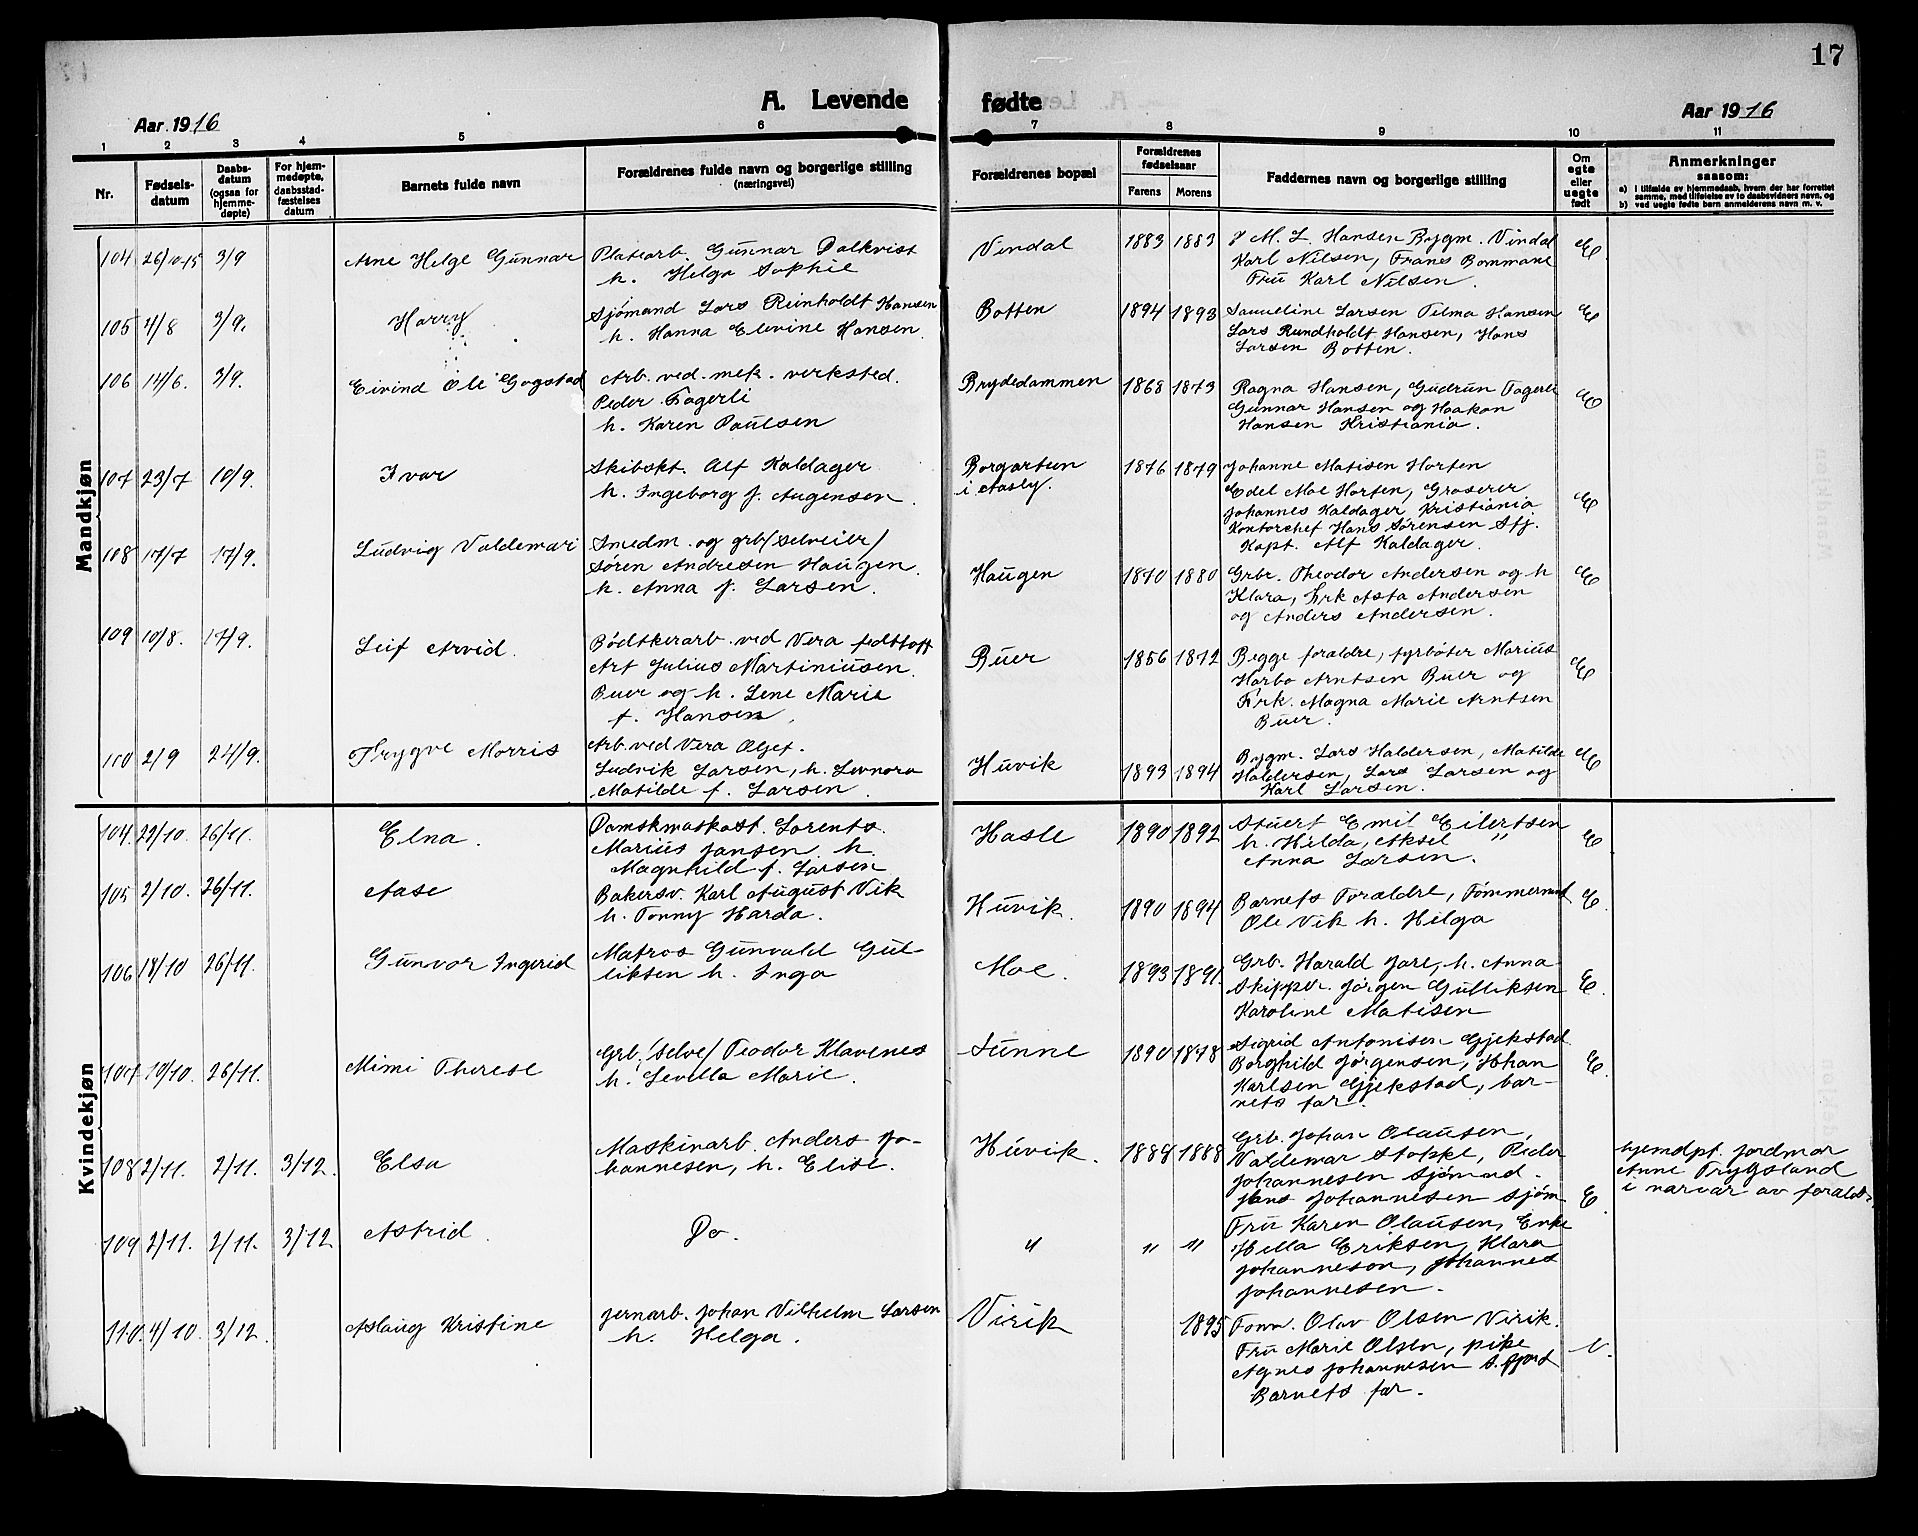 17
A. Levende fødte
Aar 1916
Aar 1916
1 2 3 4 5 6 7 8 9 10 11
Nr.
Fødsels-datum
Daabs-datum (ogsaa for hjemme-døpte)
For hjem-medøpte, daabsstad-fæstelses datum
Barnets fulde navn
Forældrenes fulde navn og borgerlige stilling
(næringsvei)
Forældrenes bopæl
Forældrenes fødselsaar
Farens Morens
Faddernes navn og borgerlige stilling
Om ægte eller uegte født
Anmerkninger
saasom:
a) i tilfælde av hjemmedaab, hvem der har forrettet samme, med tilføielse av to daabsvidners navn, og
b) ved uegte fødte barn anmelderens navn m. v.
Mandkjøn
104 26/10-15 3/9 Arne Helge Gunnar
Platearb. Gunnar Dalkvist
h. Helga Sophie
Vindal 1883 1883
M. L. Hansen Bygm. Vindal
Karl Nilsen, Frans Bommane
Fru Karl Nilsen.
E
105 4/8 3/9. Harry
Sjømand Lars Reinholdt Hansen
h. Hanna Elevine Hansen.
Botten 1894 1893
Samueline Larsen Tilma Hansen
Lars Rundholdt Hansen, Hans
Larsen Botten.
E
106 14/6. 3/9. Eivind Ole Gogstad
Arb. ved. mek. verksted.
Peder Fagerli
h. Karen Paulsen
Brydedammen 1868 1873
Ragna Hansen, Gudrun Fagerli
Gunnar Hansen og Haakon
Hansen Kristiania.
E
107 23/7 10/9. Ivar
Skibskt. Alf Kaldager
h. Ingeborg f. Augensen.
Borgarteun
i Aasly.
1876 1879
Johanne Matisen Horten
Edel Moe Horten, Groserer
Johannes Kaldager Kristiania
Kontorchef Hans Sørensen Sfj.
Kapt. Alf Kaldager.
E
108 17/7 17/9. Ludvig Valdemar
Smedm. og grb/selveier/
Søren Andresen Haugen.
h. Anna f. Larsen.
Haugen 1870 1880
Grbr. Theodor Andersen og h
Klara, Frk Asta Andersen
og Anders Andersen.
E
109 10/8. 17/9. Leif Arvid.
Bødtkerarb. ved Vera fedttoff
Art Julius Martiniusen.
Buer og h. Lene Marie
f. Hansen,
Buer 1856 1872
Begge foraldre, fyrbøter Marius
Harbo Arntsen Buer og
Frk. Magna Marie Arntsen
Buer.
E
110 2/9 24/9. Trygve Morris
Arb. ved Vera Oljef.
Ludvik Larsen, h. Levnora
Matilde f. Larsen.
Huvik 1893 1894
Bygm. Lars Haldersen, Matilde
Haldersen, Lars Larsen og
Karl Larsen.
E
Kvindekjøn
104. 29/10. 26/11. Elna.
Damskmaskast. Lorents
Marius Jansen h.
Magnhild f. Larsen
Hasle 1890 1892
Stuert Emil Eilertsen
h. Hilda, Aksel "
Anna Larsen.
E
105 2/10. 26/11. Aase
Bakersv. Karl August Vik
h. Tonny Harda.
Huvik. 1890 1894
Barnets Foraldre, Tømmermd
Ole Vik h. Helga
E.
106 18/10 26/11. Gunvor Ingerid
Matros Gunvald Gul-
liksen h. Inga
Moe. 1893 1891.
Grb. Harald Jare, h. Anna
Skipper. Jørgen Gulliksen
Karoline Matisen
E.
107 10/10. 26/11. Mimi Therese
Grb./Selve/ Teodor Klavenes
h. Sevilla Marie.
Sunne 1890 1878
Sigrid Antonisen Gjekstad
Borghild Jørgensen, Johan
Karlsen Gjekstad, bar-
nets far.
E.
108 2/11. 2/11. 3/12. Elsa
Maskinarb. Anders Jo-
hannesen, h. Elise.
Huvik. 1884 1888
Grb. Johan Olausen,
Valdemar Stokke, Peder
Johannesen Sjømnd.
Jens Johannesen sjøm
E.
hjemdpt. jordmor
Anne Trygsland
i narvær av forald.
109 2/11. 2/11. 3/12 Astrid.
Do.
" " "
Fru Karen Olausen, Enke
Hella Eriksen, Klara
Johanneson, Johannes
Johannesen.
110. 4/10. 3/12. Aslaug Kristine
Jernarb. Johan Vilhelm Larsen
h. Helga.
Virik 1895
Tomm. Olav Olsen Virik.
Fru Marie Olsen, pike
Agnes Johannesen S. fjord
Barnets far.